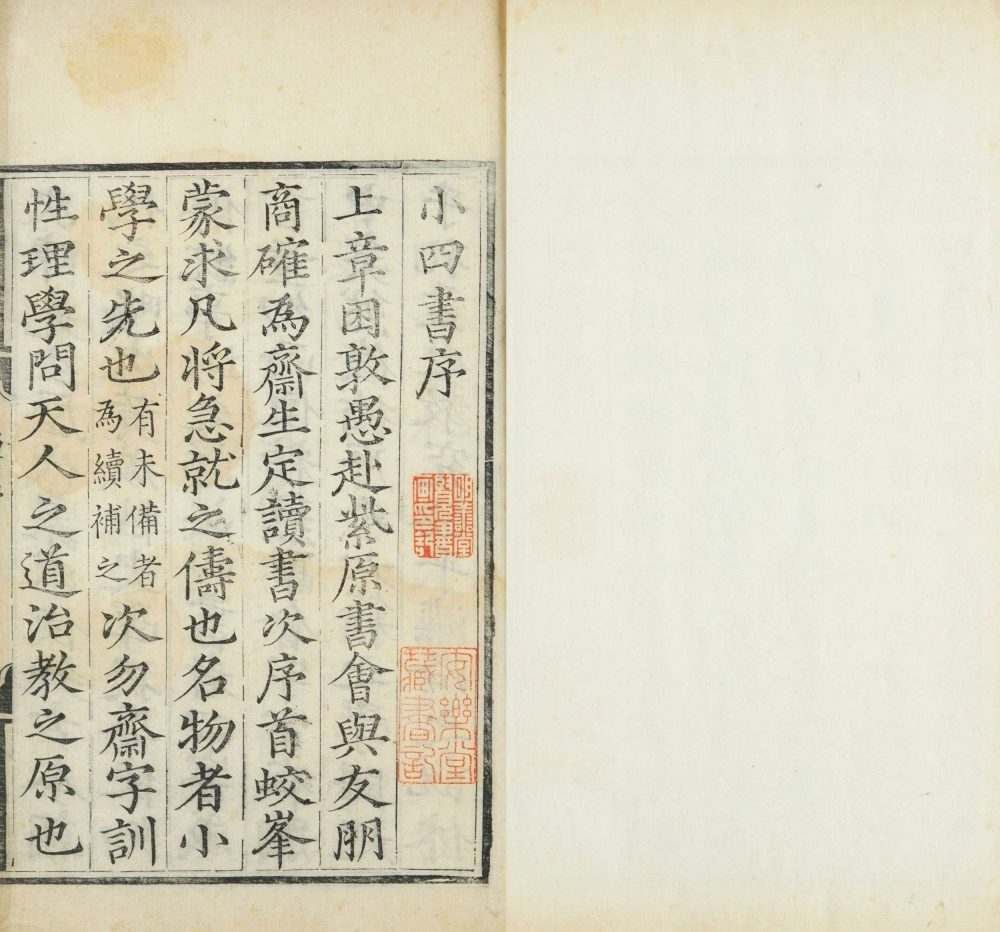 小四書序
上章困敦愚赴紫原書會與友朋
商確為齋生定讀書次序首蛟峯
蒙求凡将急就之儔也名物者小
學之先也有未備者為續補之次勿齋字訓
性理學問天人之道治教之原也
明善堂覽書畫印記
安樂堂藏書記